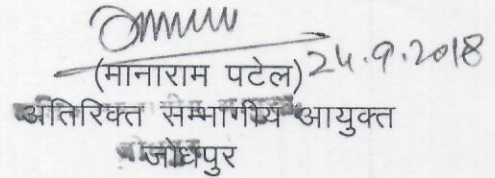 (मानाराम पटेल) 24.9.2018
अतिरिक्त सम्भागीय आयुक्त
जोधपुर